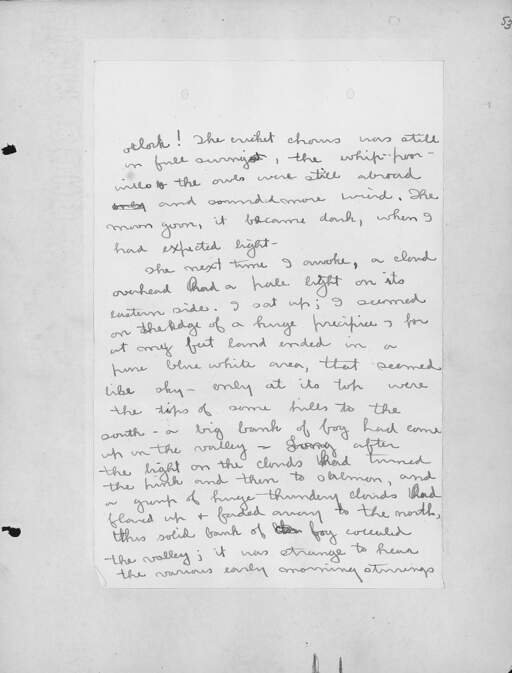 53
oclock! The cricket chorus was still
in full swing, the whip-poor-
wills & the owls were still abroad
and sounded more weird. The
moon gone, it became dark, when I
had expected light-
The next time I awoke, a cloud
overhead had a pale light on its
eastern side. I sat up; I seemed
on the edge of a huge precipice & for
at my feet land ended in a
pure blue white area, that seemed
like sky - only at its top were
the tips of some hills to the
south - a big bank of fog had come
up in the valley - Long after
the light on the clouds had turned
the pink and then to salmon, and
a group of huge thundery clouds had
flared up & faded away to the north,
this solid bank of fog concealed
the valley; it was strange to hear
the various early morning stirrings